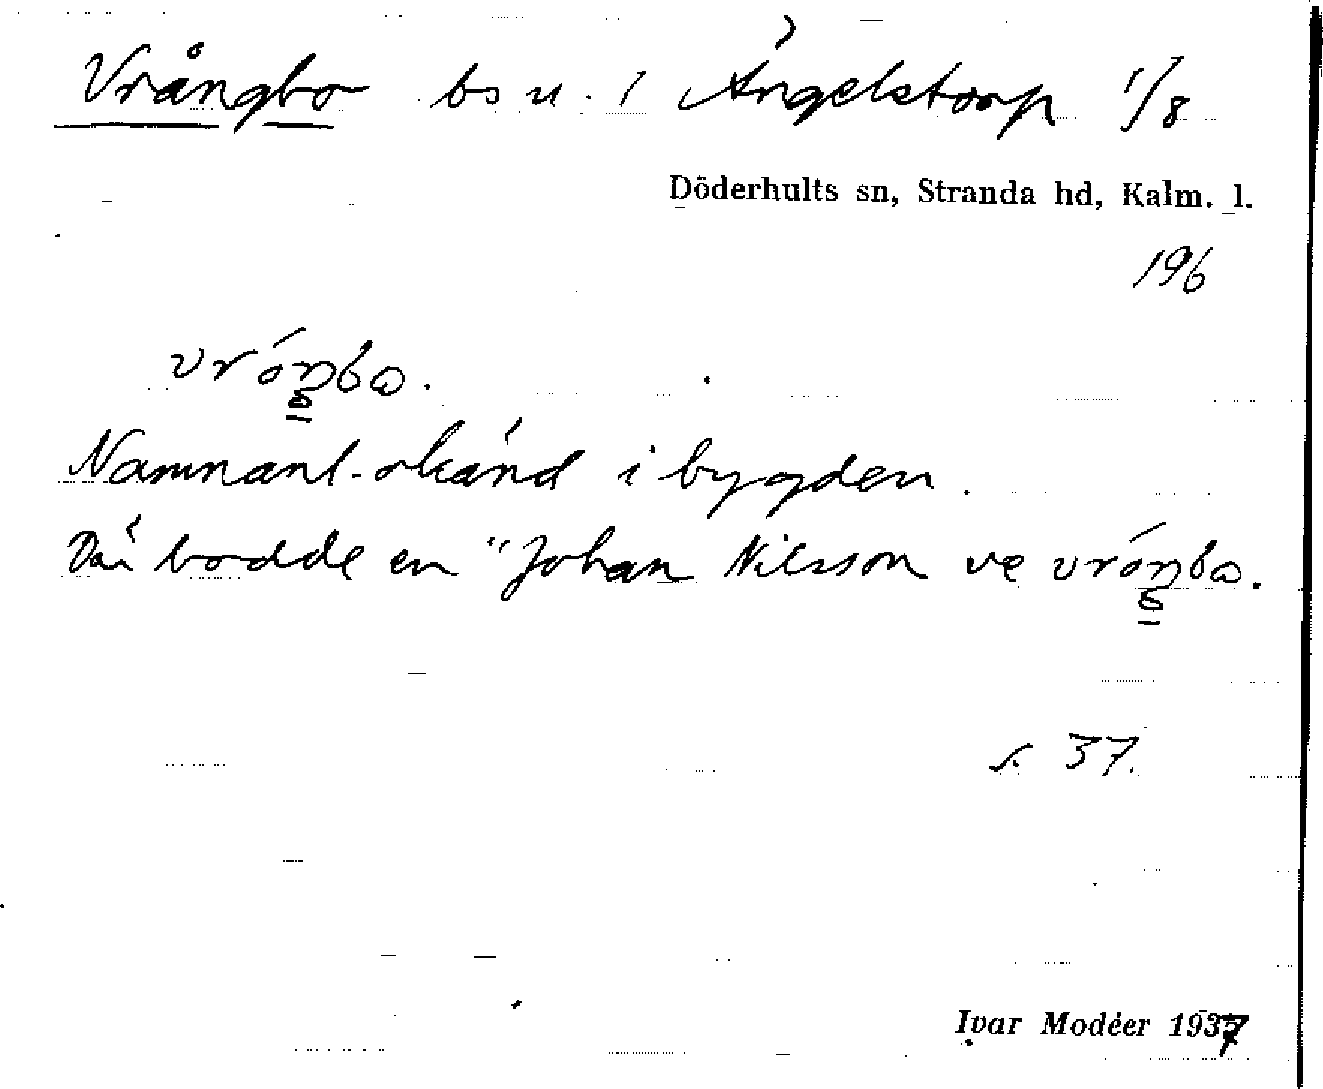 Vrångbo bs u. / Ängelstorp 1/8
Döderhults sn, Stranda hd, Kalm. l.
196
vróŋbω.
Namnant. okänd i bygden.
Där bodde en "Johan Nilsson ve vróŋbω.
s. 37.
Ivar Modéer 1937